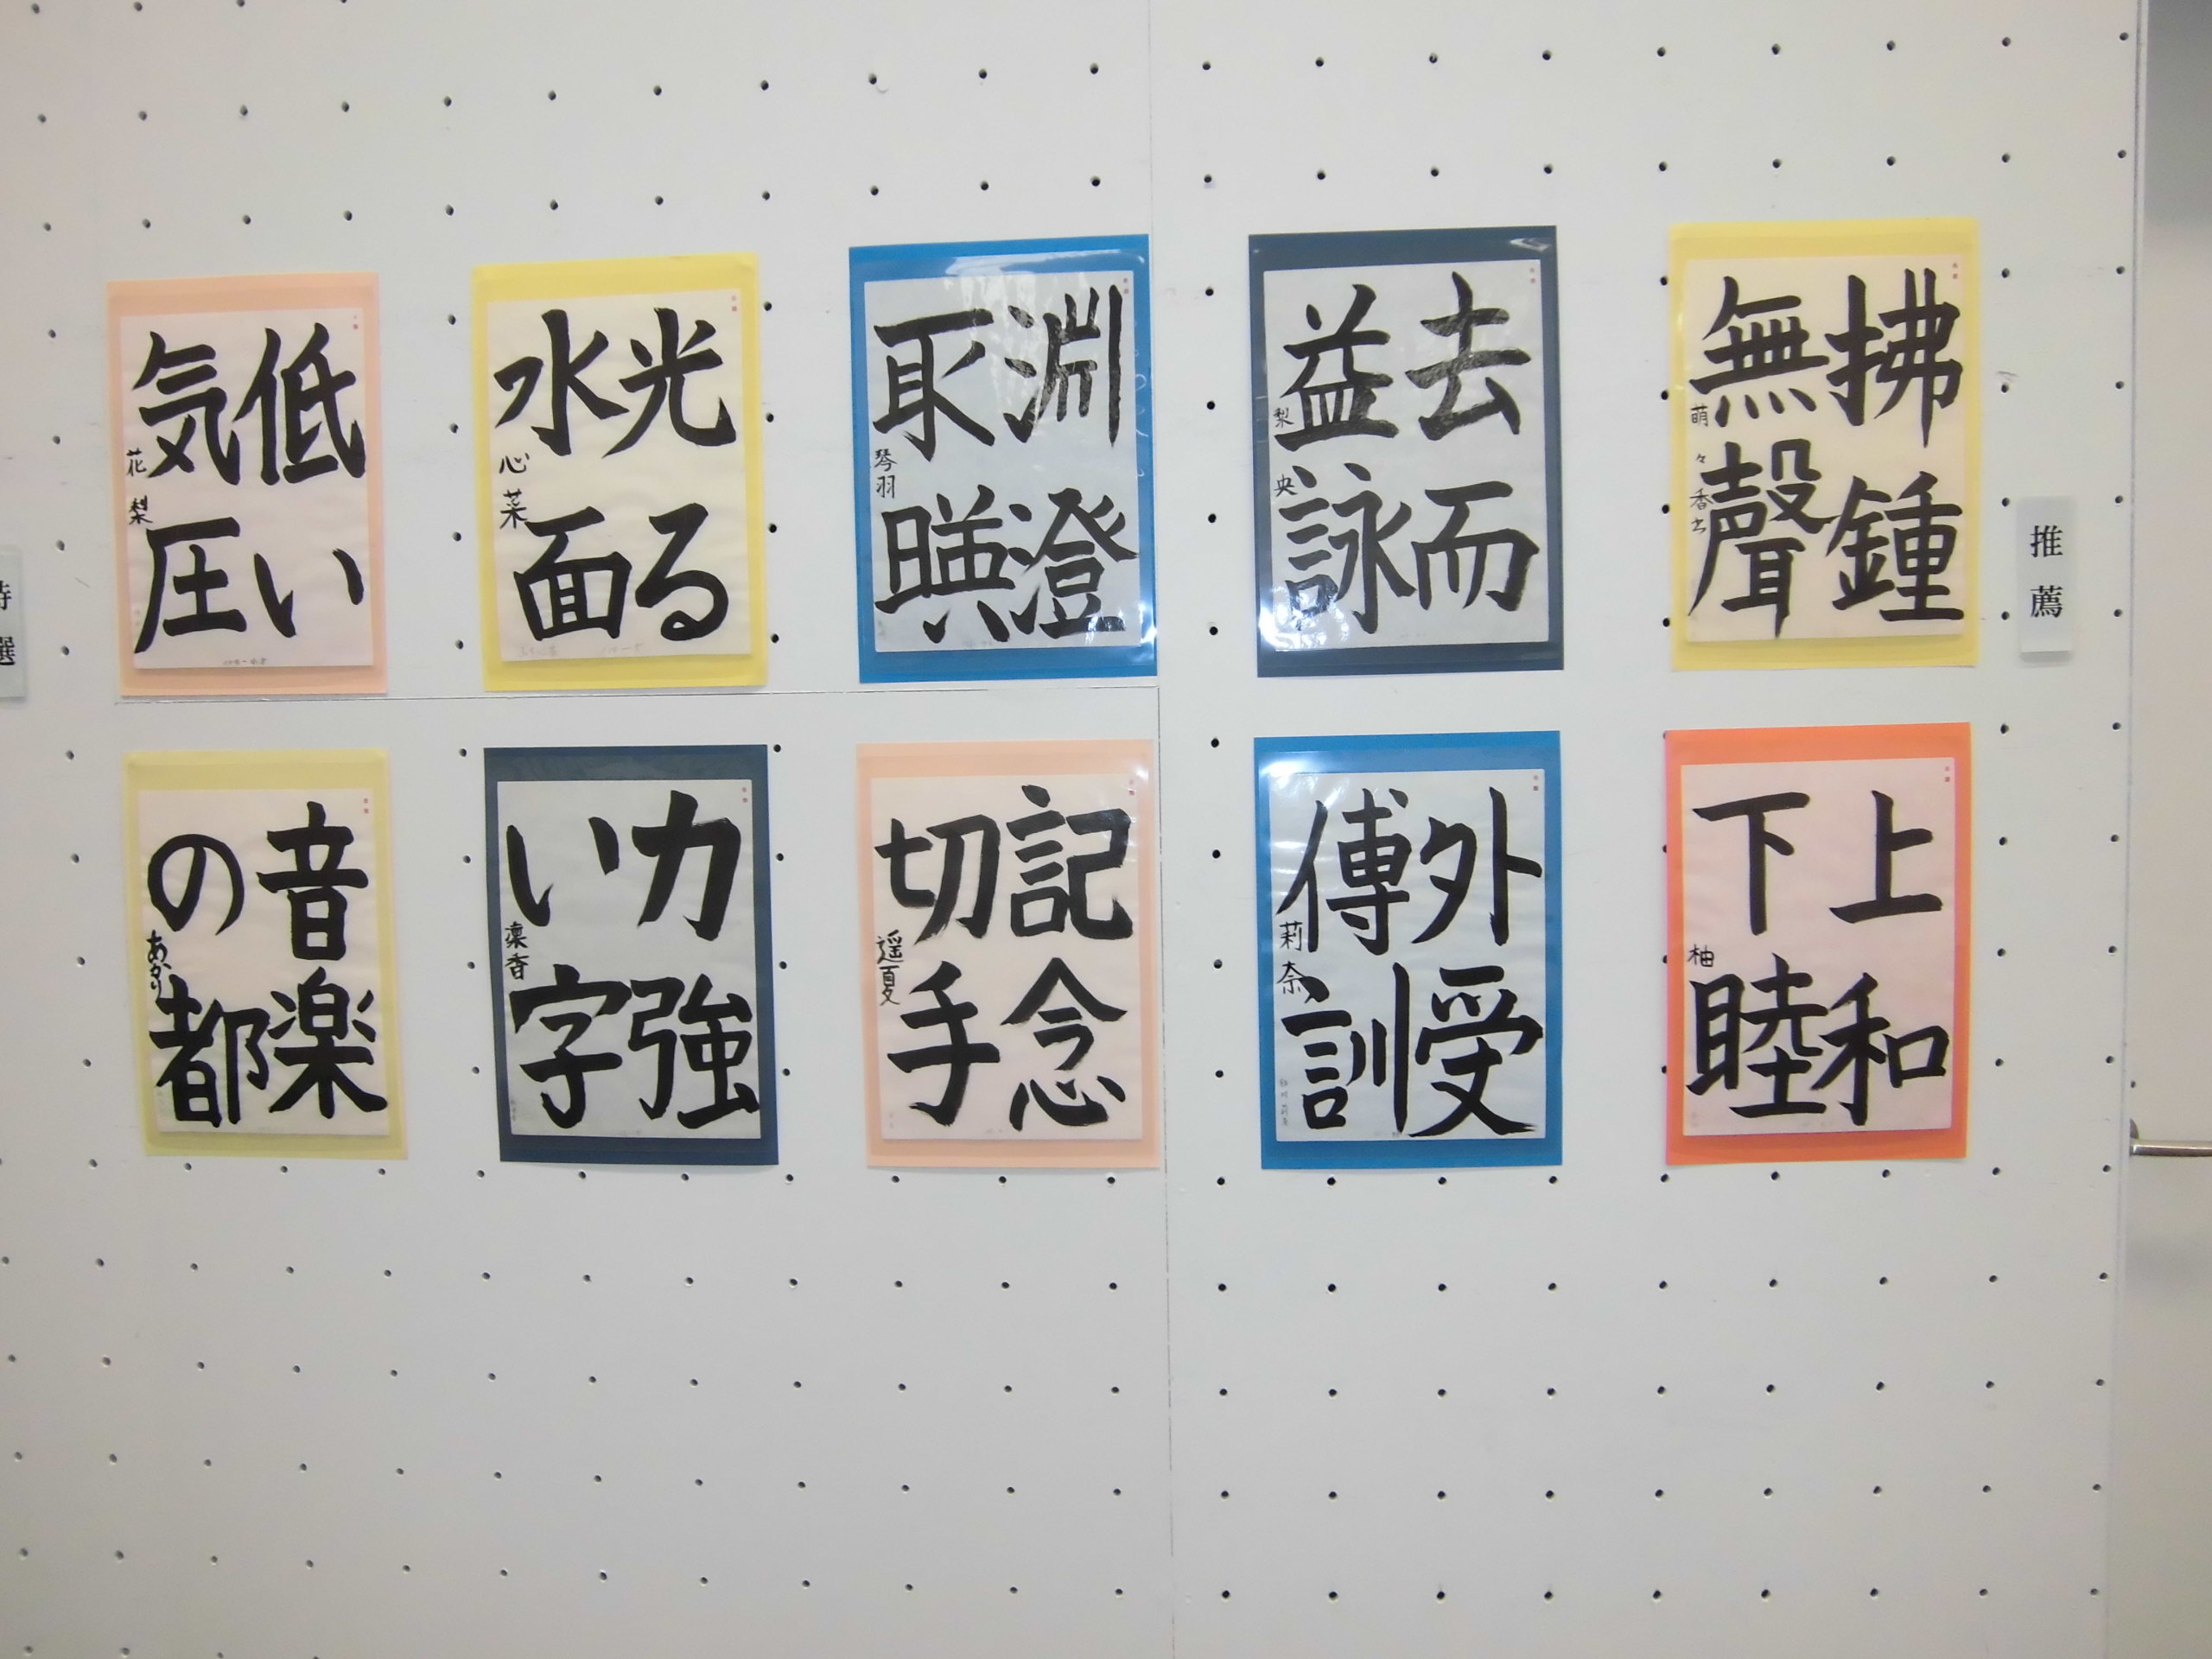 推薦
拂鍾
無聲
萌々香
去而
益詠
梨央
淵澄
取暎
琴羽
光る
水面
心菜
低い
気圧
花梨
上和
下睦
柚
外受
傅訓
莉奈
記念
切手
遥夏
力強
い字
凛香
音楽
の都
あかり
特選